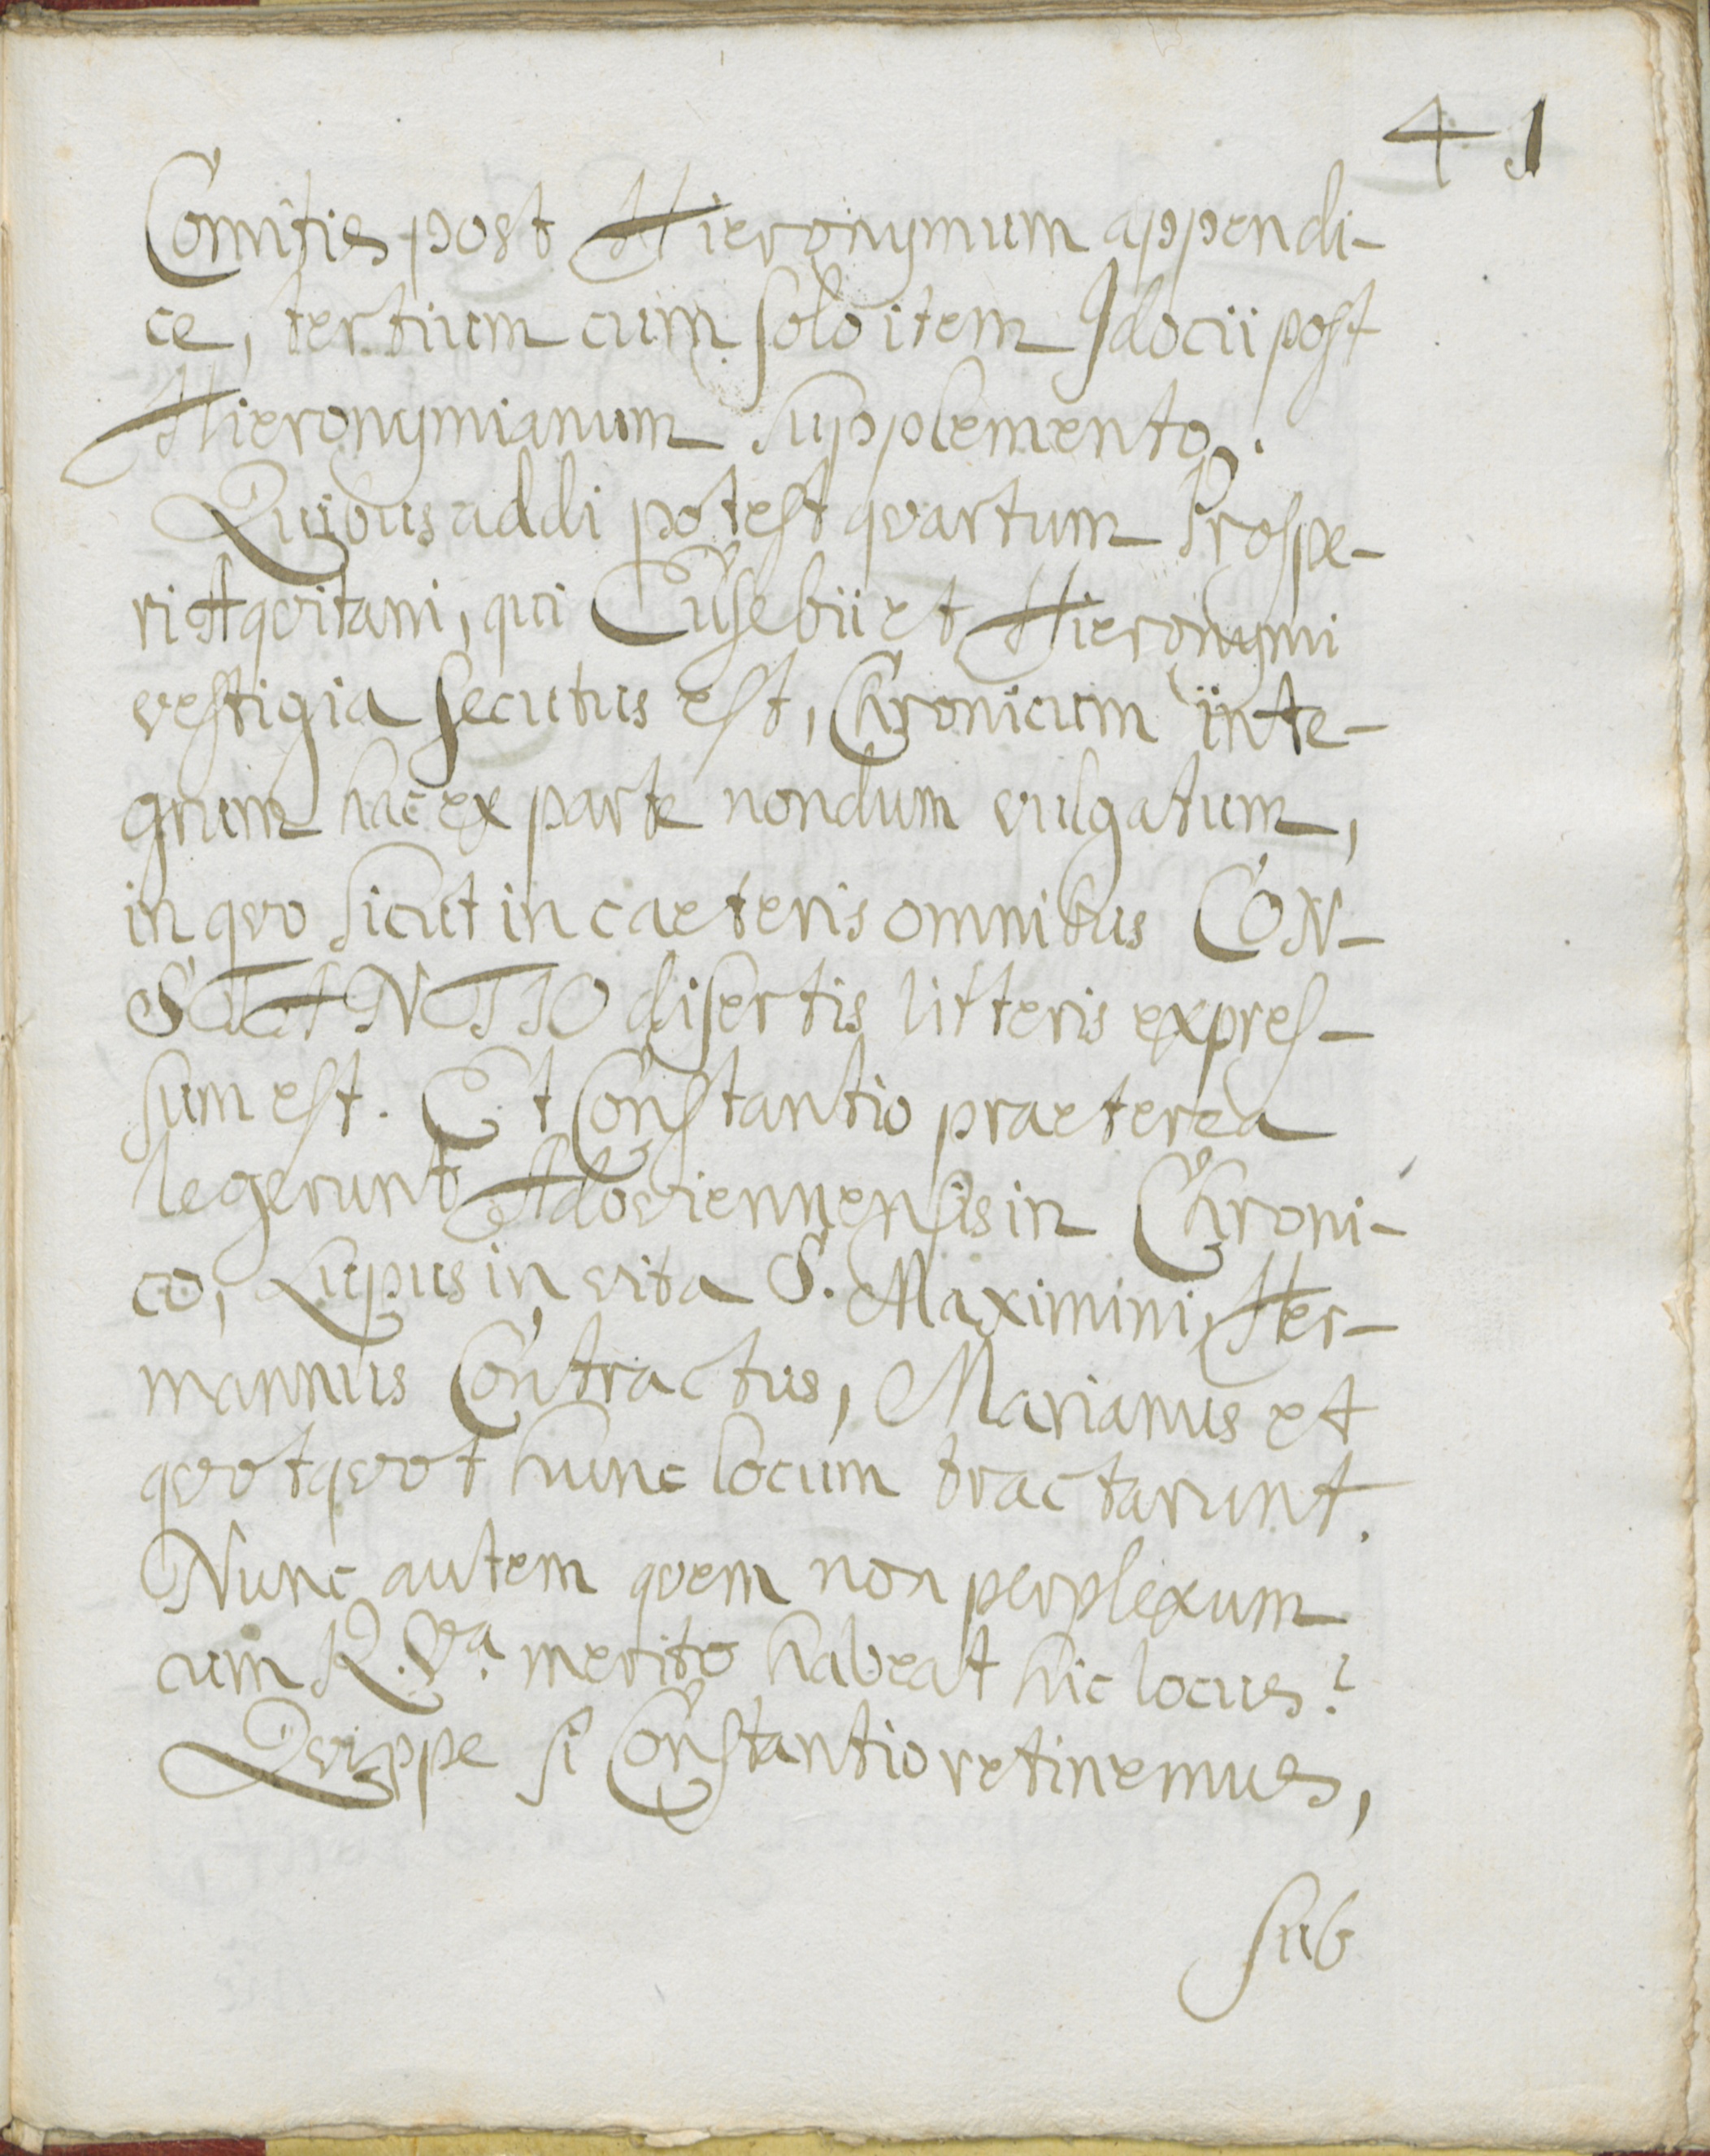 41
Comitis post Hieronymum appendi-
ce, tertium cum solo item Idacii post
Hieronymianum supplemento.
Quibus addi potest qvartum Prospe-
ri Aqvitani, qui Eusebii et Hieronymi
vestigia secutus est, Chronicum inte-
grum hac ex parte nondum vulgatum,
in qvo sicut in caeteris omnibus CON-
STANTIO disertis litteris expres-
sum est. Et Constantio praeterea
legerunt Adoviennensis in Chroni-
co, Lupus in vita S. Maximini, Her-
mannus Contractus, Marianus et
qvotqvot hunc locum tractarunt.
Nunc autem qvem non perplexum
cum R. Va. merito habeat hic locus?
Qvippe si Constantio retinemus,
sub